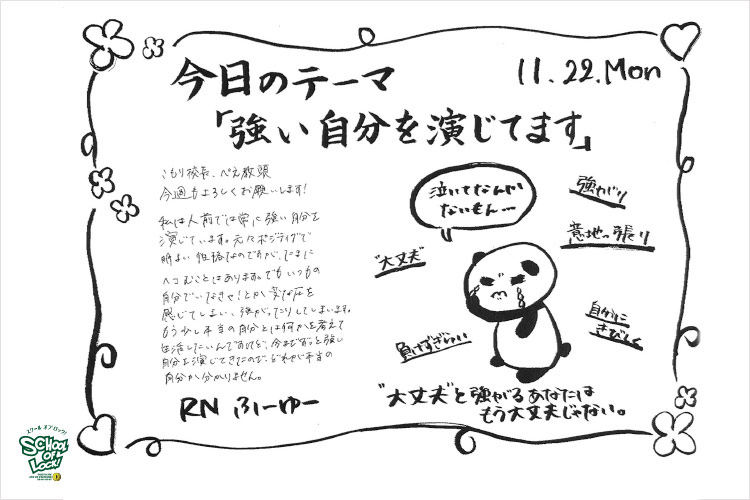 今日のテーマ
11.22.Mon
「強い自分を演じてます」
こもり校長、ぺえ教頭
今週もよろしくお願いします!
私は人前では常に強い自分を
演じています。元々ポジティブで
明るい性格なのですが、たまに
ヘコむことはあります。でもいつもの
自分でいなきゃ!とか変な圧を
感じてしまい、強がったりしてしまいます。
もう少し本当の自分とは何かを考えて
生活したいんですけど、今までずっと強い
自分を演じてきたので、どれが本当の
自分か分かりません。
RN ふーゆー
泣いてなんか
ないもん…
強がり
意地っ張り
"大丈夫"
自分に
きびしく
負けずぎらい
"大丈夫"と強がるあなたは
もう大丈夫じゃない。
スクール オブ ロック!
SCHOOL
OF
LOCK!